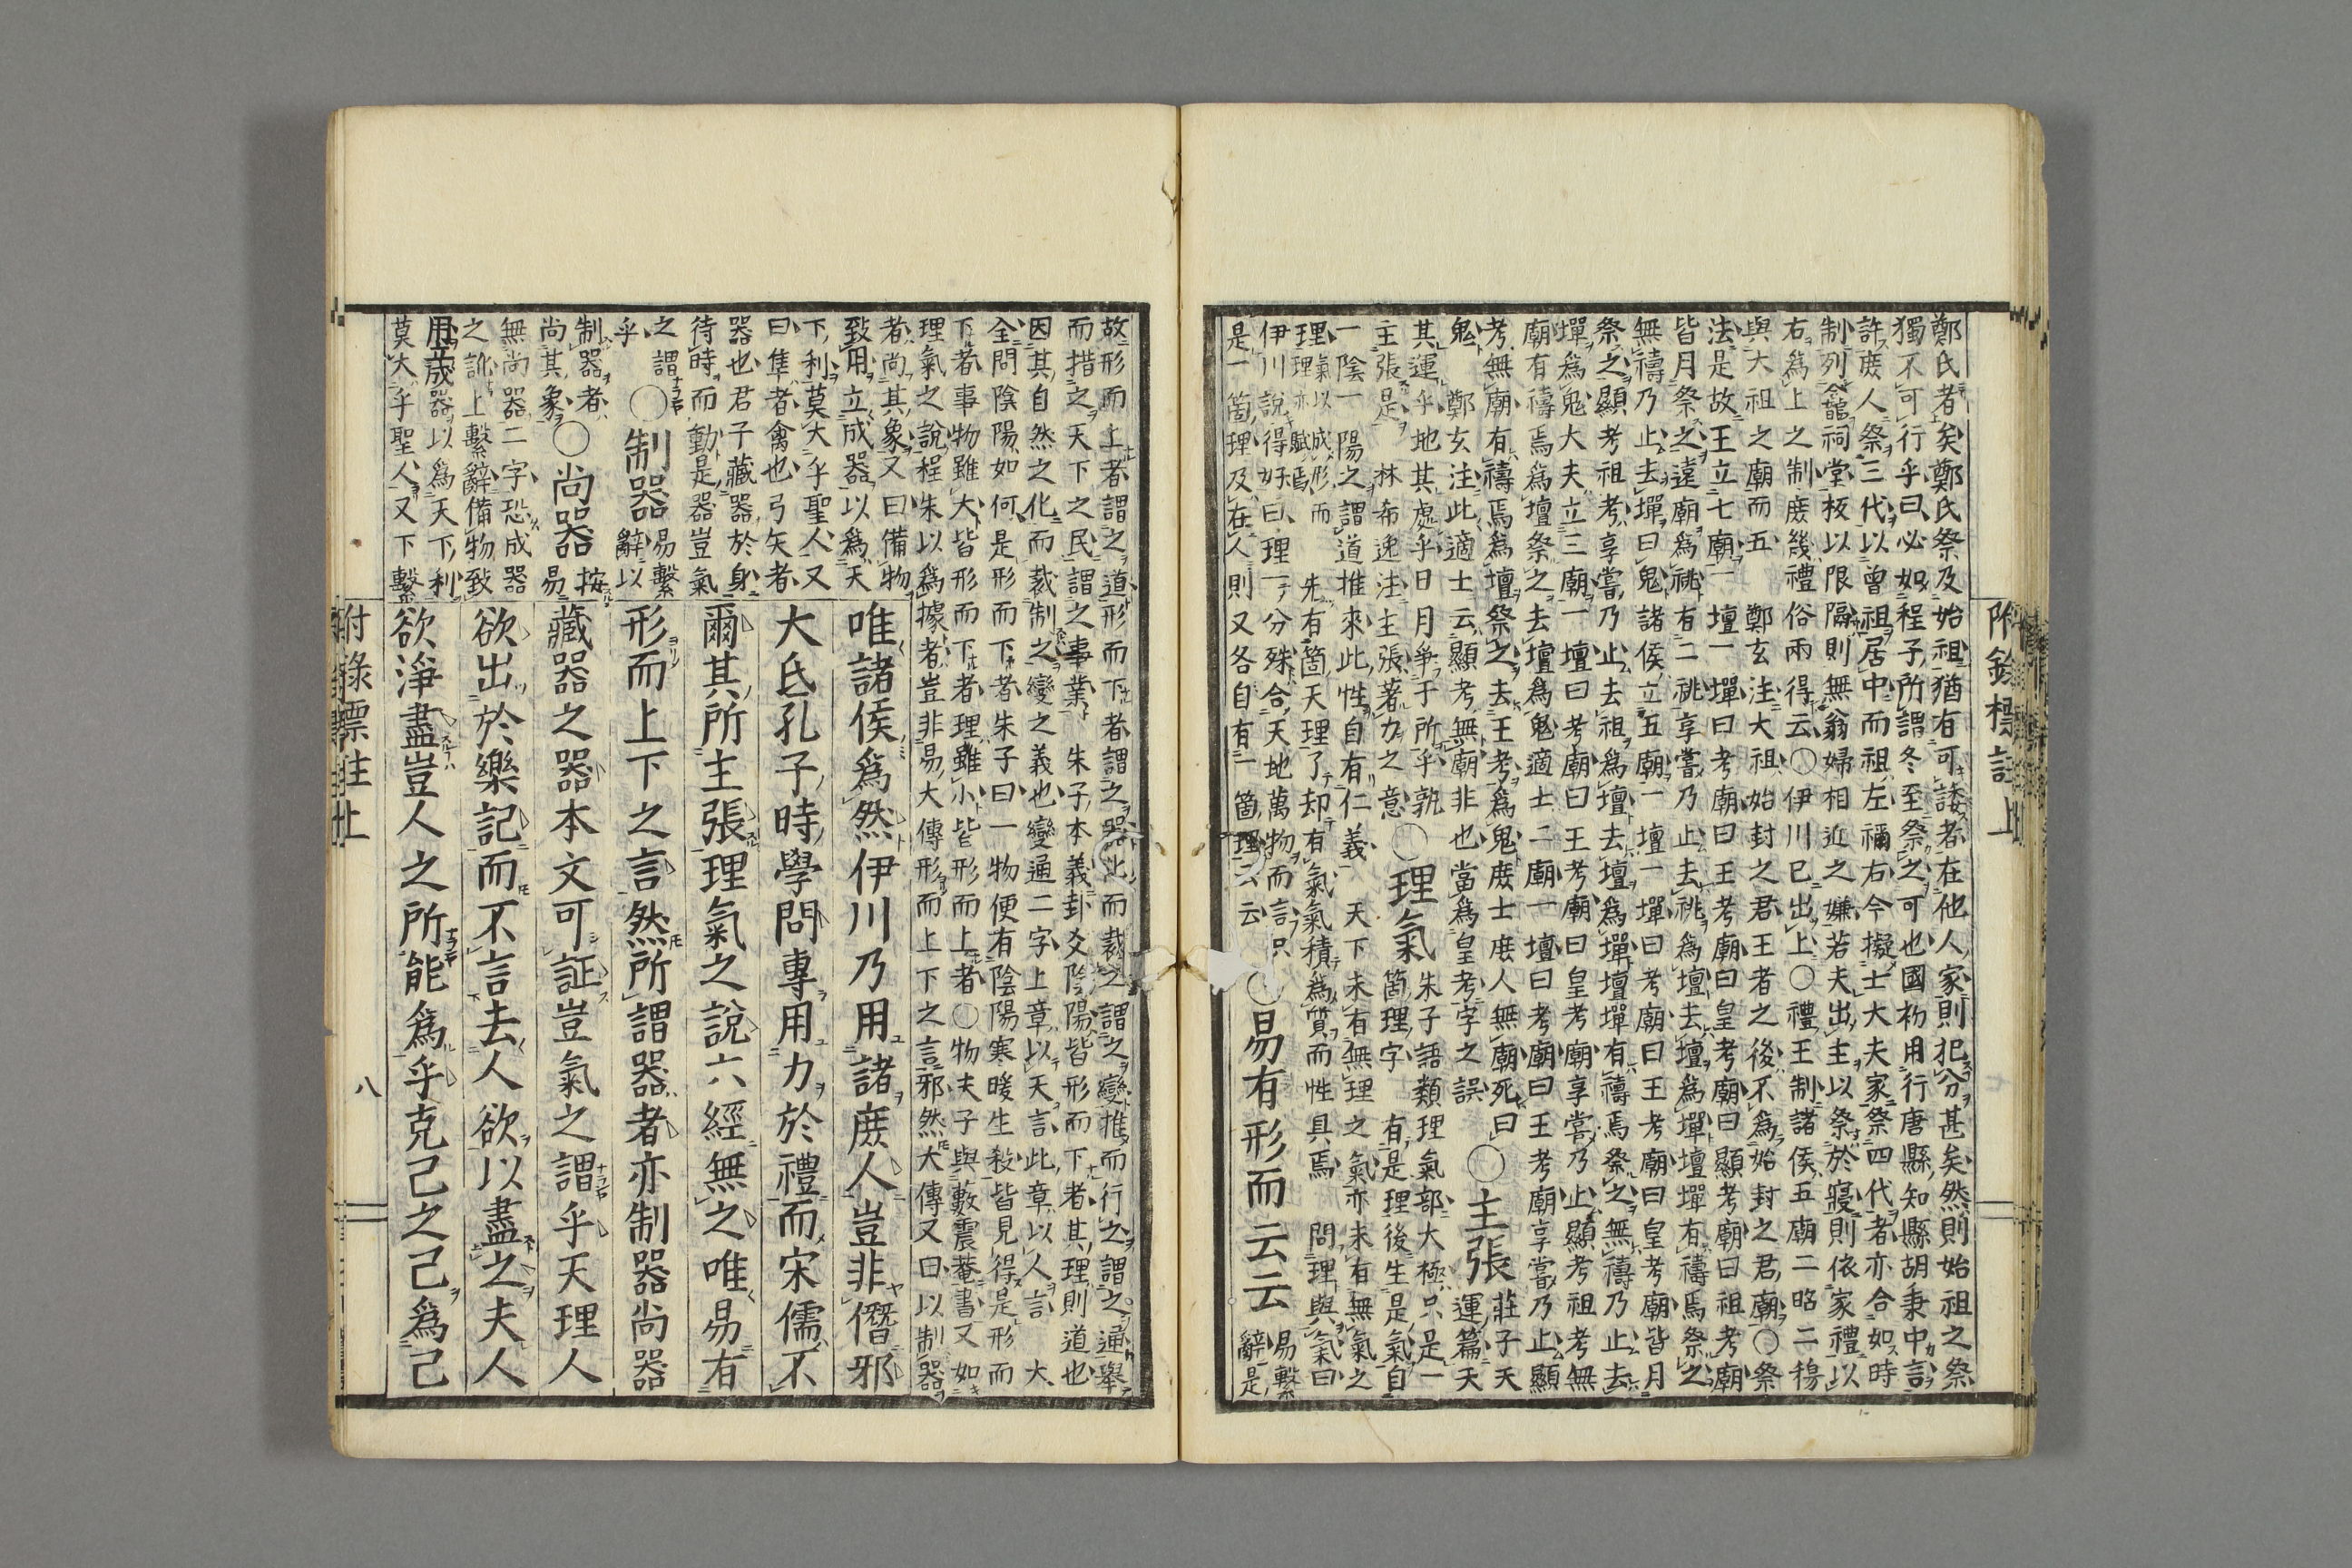 鄭氏者矣鄭氏祭及始祖猶有可諉者在他人家則犯分甚矣然則始祖之祭
獨不可行乎曰必如程子所謂冬至祭之可也國初用行唐縣知縣胡秉中言
許庶人祭三代以曾祖居中而祖左禰右今擬士大夫家祭四代者亦合如時
制列龕祠堂板以限隔則無翁婦相近之嫌若夫出主以祭於寢則依家禮以
右爲上之制庶幾禮俗兩得云○伊川已出上○禮王制諸侯五廟二昭二穆
與大祖之廟而五 鄭玄注大祖始封之君王者之後不爲始封之君廟○祭
法是故王立七廟一壇一墠曰考廟曰王考廟曰皇考廟曰顯考廟曰祖考廟
皆月祭之遠廟爲祧有二祧享嘗乃止去祧爲壇去壇爲墠壇墠有禱焉祭之
無禱乃止去墠曰鬼諸侯立五廟一壇一墠曰考廟曰王考廟曰皇考廟皆月
祭之顯考祖考享嘗乃止去祖爲壇去壇爲墠壇墠有禱焉祭之無禱乃止去
墠爲鬼大夫立三廟一壇曰考廟曰王考廟曰皇考廟享嘗乃止顯考祖考無
廟有禱焉爲壇祭之去壇爲鬼適士二廟一壇曰考廟曰王考廟享嘗乃止顯
考無廟有禱焉爲壇祭之去王考爲鬼庶士庶人無廟死曰
鬼 鄭玄注此適士云顯考無廟非也當爲皇考字之誤
○主張
莊子天
運篇天
其運乎地其處乎日月爭于所乎孰
主張是 林希逸注主張著力之意
○理氣
朱子語類理氣部大極只是一
箇理字 有是理後生是氣自
一陰一陽之謂道推來此性自有仁義 天下未有無理之氣亦未有無氣之
理氣以成形而
理亦賦焉
先有箇天理了却有氣氣積爲質而性具焉 問理與氣曰
伊川說得好曰理一分殊合天地萬物而言只
是一箇理及在人則又各自有一箇理云云
○易有形而云云
易繫
辭是
附錄標註上
故形而上者謂之道形而下者謂之器化而裁之謂之變推而行之謂之通舉
而措之天下之民謂之事業 朱子本義卦爻陰陽皆形而下者其理則道也
因其自然之化而裁制之變之義也變通二字上章以天言此章以人言 大
全問陰陽如何是形而下者朱子曰一物便有陰陽寒暖生殺皆見得是形而
下者事物雖大皆形而下者理雖小皆形而上者○物夫子與藪震菴書又如
理氣之說程朱以爲據者豈非易大傳形而上下之言邪然大傳又曰以制器
者尚其象又曰備物
致用立成器以爲天
下利莫大乎聖人又
曰隼者禽也弓矢者
器也君子藏器於身
待時而動是器豈氣
之謂
乎
○制器
易繫
辭以
制器者
尚其象
○尚器
按
易
無尚器二字恐成器
之訛上繫辭備物致
用立成器以爲天下利
莫大乎聖人又下繫
唯諸侯爲然伊川乃用諸庶人豈非僭邪
大氐孔子時學問專用力於禮而宋儒不
爾其所主張理氣之說六經無之唯易有
形而上下之言然所謂器者亦制器尚器
藏器之器本文可証豈氣之謂乎天理人
欲出於樂記而不言去人欲以盡之夫人
欲淨盡豈人之所能爲乎克己之己爲己
附錄標註上
八